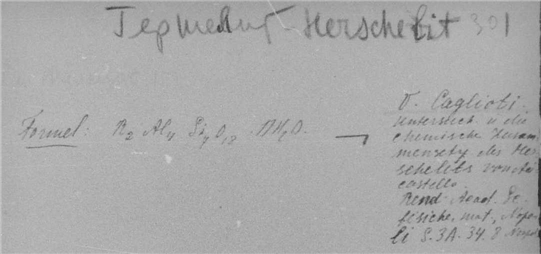 Гершелит - Herschelit 301
Formel: R2 Al4 Si7 O18 · 
V. Caglioti.
Untersuch. ü. die
chemische Zusam
mensetz. des Her
schelits von Aci
castello
Rend. Acad. Sc.
fisiche, mat., Napo
li S. 3A. 34. 8